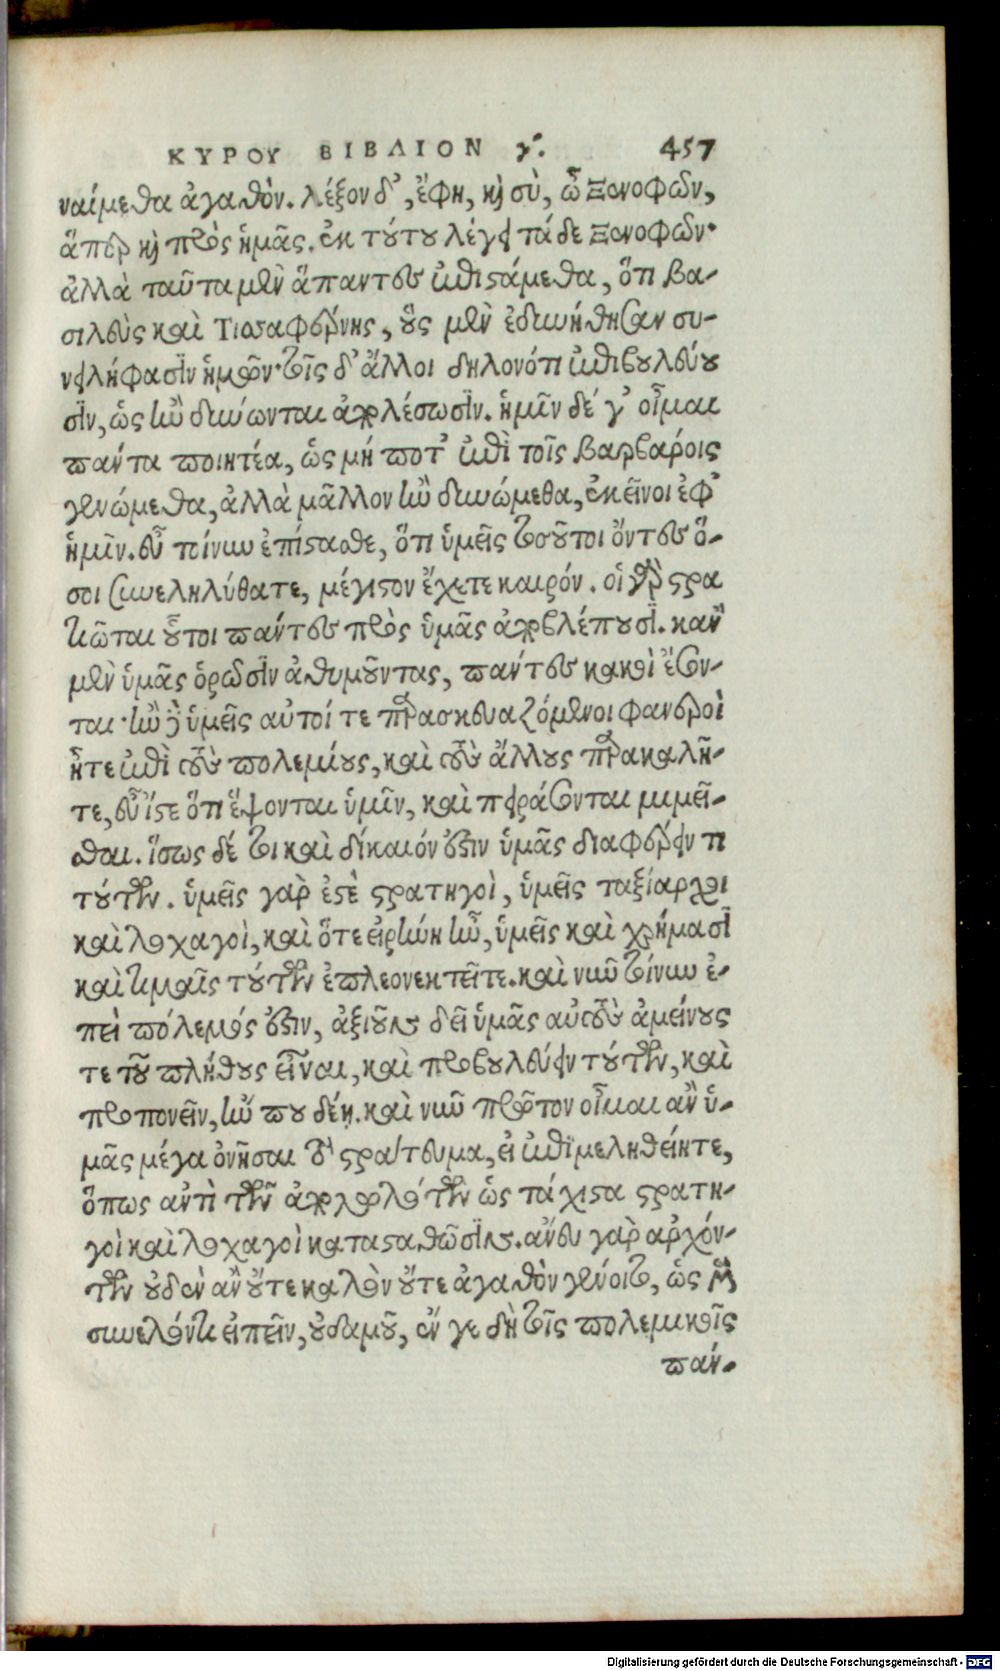 ΚΥΡΟΥ ΒΙΒΛΙΟΝ γ΄. 457
ναίμεθα ἀγαθὸν. λέξον δ', ἔφη, καὶ σὺ, ὦ Ξενοφῶν,
ἅπερ καὶ πρὸς ἡμᾶς. ἐκ τούτου λέγει τάδε Ξενοφῶν·
ἀλλὰ ταῦτα μὲν ἅπαντες ἐπιστάμεθα, ὅτι βα-
σιλεὺς καὶ Τισσαφέρνης, οὓς μὲν ἐδυνήθησαν συ-
νειλήφασιν ἡμῶν· τοῖς δ' ἄλλοι δηλονότι ἐπιβουλεύου
σιν, ὡς ἢν δύνωνται ἀπολέσωσιν. ἡμῖν δέ γ' οἶμαι
πάντα ποιητέα, ὡς μή ποτ' ἐπὶ τοῖς βαρβάροις
γενώμεθα, ἀλλὰ μᾶλλον ἢν δυνώμεθα, ἐκεῖνοι ἐφ'
ἡμῖν. εὖ τοίνυν ἐπίστασθε, ὅτι ὑμεῖς τοσοῦτοι ὄντες ὅ-
σοι συνεληλύθατε, μέγιστον ἔχετε καιρόν. οἱ γὰρ στρα
τιῶται οὗτοι πάντες πρὸς ὑμᾶς ἀποβλέπουσι. κἂν
μὲν ὑμᾶς ὁρῶσιν ἀθυμοῦντας, πάντες κακοὶ ἔσον-
ται· ἢν δὲ ὑμεῖς αὐτοί τε παρασκευαζόμενοι φανεροὶ
ἦτε ἐπὶ τοὺς πολεμίους, καὶ τοὺς ἄλλους παρακαλῆ-
τε, εὖ ἴστε ὅτι ἕψονται ὑμῖν, καὶ πειράσονται μιμεῖ-
σθαι. ἴσως δέ τοι καὶ δίκαιόν ἐστιν ὑμᾶς διαφέρειν τι
τούτων. ὑμεῖς γὰρ ἐστὲ στρατηγοὶ, ὑμεῖς ταξίαρχοι
καὶ λοχαγοὶ, καὶ ὅτε εἰρήνη ἦν, ὑμεῖς καὶ χρήμασι
καὶ τιμαῖς τούτων ἐπλεονεκτεῖτε. καὶ νῦν τοίνυν ἐ-
πεὶ πόλεμός ἐστιν, ἀξιοῦν δεῖ ὑμᾶς αὐτοὺς ἀμείνους
τε τοῦ πλήθους εἶναι, καὶ προβουλεύειν τούτων, καὶ
προπονεῖν, ἤν που δέῃ. καὶ νῦν πρῶτον οἶμαι ἂν ὑ-
μᾶς μέγα ὀνῆσαι τὸ στράτευμα, εἰ ἐπιμεληθείητε,
ὅπως ἀντὶ τῶν ἀπολωλότων ὡς τάχιστα στρατη-
γοὶ καὶ λοχαγοὶ κατασταθῶσιν. ἄνευ γὰρ ἀρχόν-
των οὐδὲν ἂν οὔτε καλὸν οὔτε ἀγαθὸν γένοιτο, ὡς μὲν
συνελόντι εἰπεῖν, οὐδαμοῦ, ἐν γε δὴ τοῖς πολεμικοῖς
παν-
Digitalisierung gefördert durch die Deutsche Forschungsgemeinschaft - DFG